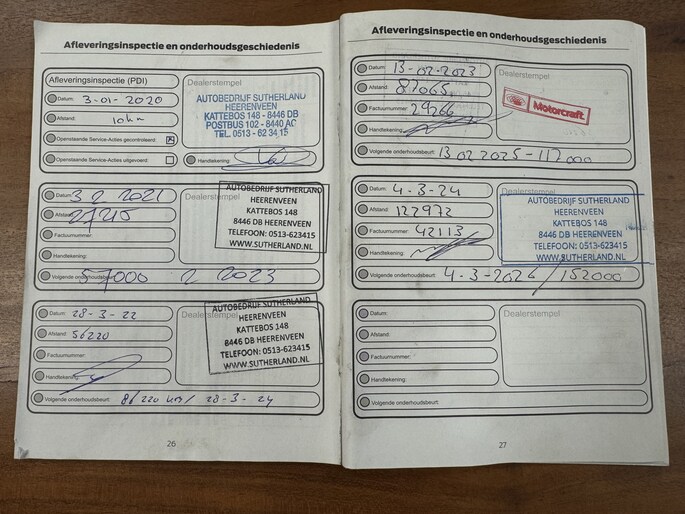 Afleveringsinspectie en onderhoudsgeschiedenis
Afleveringsinspectie (PDI)
Datum: 3-01-2020
Afstand: 10km
Openstaande Service-Acties gecontroleerd:
Openstaande Service-Acties uitgevoerd:
Dealerstempel
AUTOBEDRIJF SUTHERLAND
HEERENVEEN
KATTEBOS 148 - 8446 DB
POSTBUS 102 - 8440 AC
TEL. 0513 - 62 34 15
Handtekening:
Datum: 3 2 2021
Afstand: 27210
Factuurnummer:
Handtekening:
Dealerstempel
AUTOBEDRIJF SUTHERLAND
HEERENVEEN
KATTEBOS 148
8446 DB HEERENVEEN
TELEFOON: 0513-623415
WWW.SUTHERLAND.NL
Volgende onderhoudsbeurt: 57000 2 2023
Datum: 28-3-22
Afstand: 56220
Factuurnummer:
Handtekening:
Dealerstempel
AUTOBEDRIJF SUTHERLAND
HEERENVEEN
KATTEBOS 148
8446 DB HEERENVEEN
TELEFOON: 0513-623415
WWW.SUTHERLAND.NL
Volgende onderhoudsbeurt: 86220 km / 28-3-24
26
Afleveringsinspectie en onderhoudsgeschiedenis
Datum: 13-02-2023
Afstand: 87065
Factuurnummer: 29266
Handtekening:
Dealerstempel
Motorcraft
Volgende onderhoudsbeurt: 13 02 2025 - 117000
Datum: 4-3-24
Afstand: 122972
Factuurnummer: 42113
Handtekening:
Dealerstempel
AUTOBEDRIJF SUTHERLAND
HEERENVEEN
KATTEBOS 148
8446 DB HEERENVEEN
TELEFOON: 0513-623415
WWW.SUTHERLAND.NL
Volgende onderhoudsbeurt: 4-3-2026 / 152000
Datum:
Afstand:
Factuurnummer:
Handtekening:
Dealerstempel
Volgende onderhoudsbeurt:
27